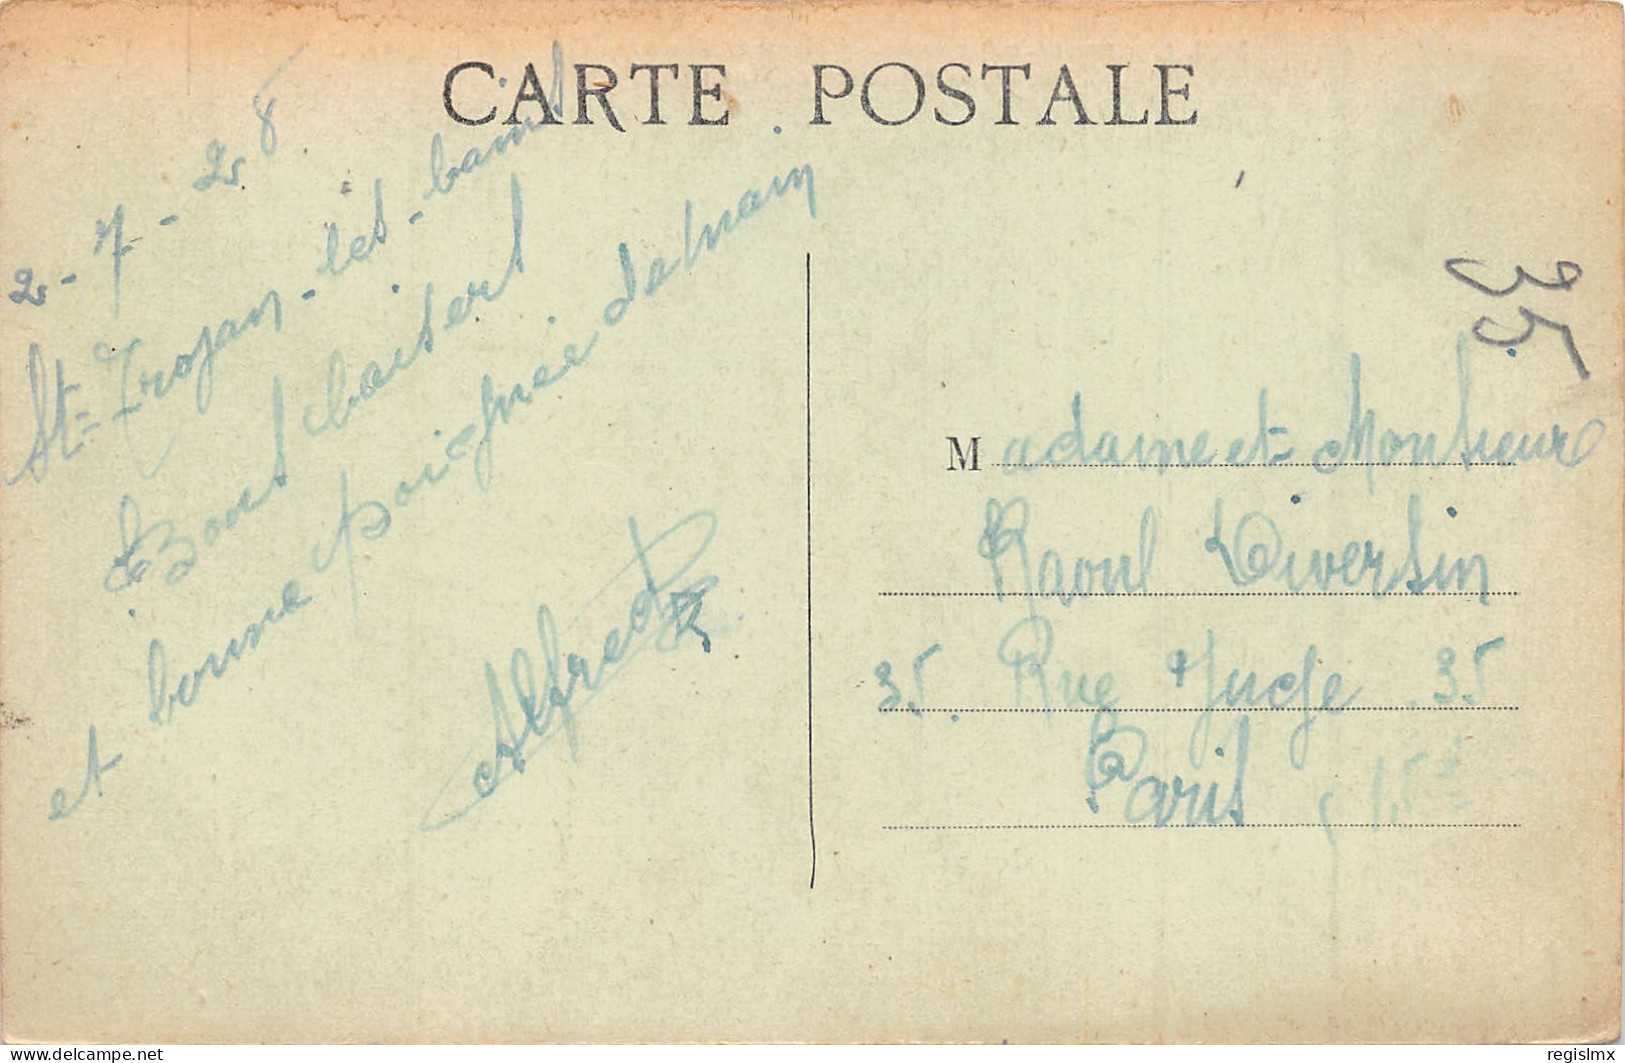 CARTE POSTALE
2-7-28
St-Trojan-les-bains
Bons baisers
et bonne poignée de main
Alfred
35
Madame et Monsieur
Raoul Diversin
35. Rue Juge. 35
Paris, 15e
delcampe.net
regislmx